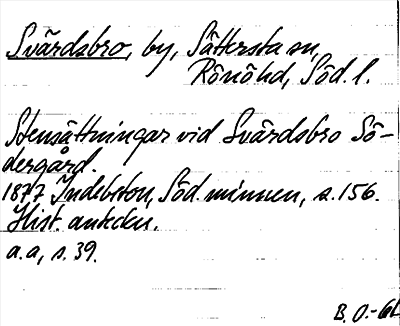 Svärdsbro, by, Sättersta sn,
Rönö hd, Söd. l.
Stensättningar vid Svärdsbro Sö-
dergård.
1877 Indebetou, Söd. minnen, s. 156.
Hist. anteckn.
a.a, s. 39.
B. O.-61